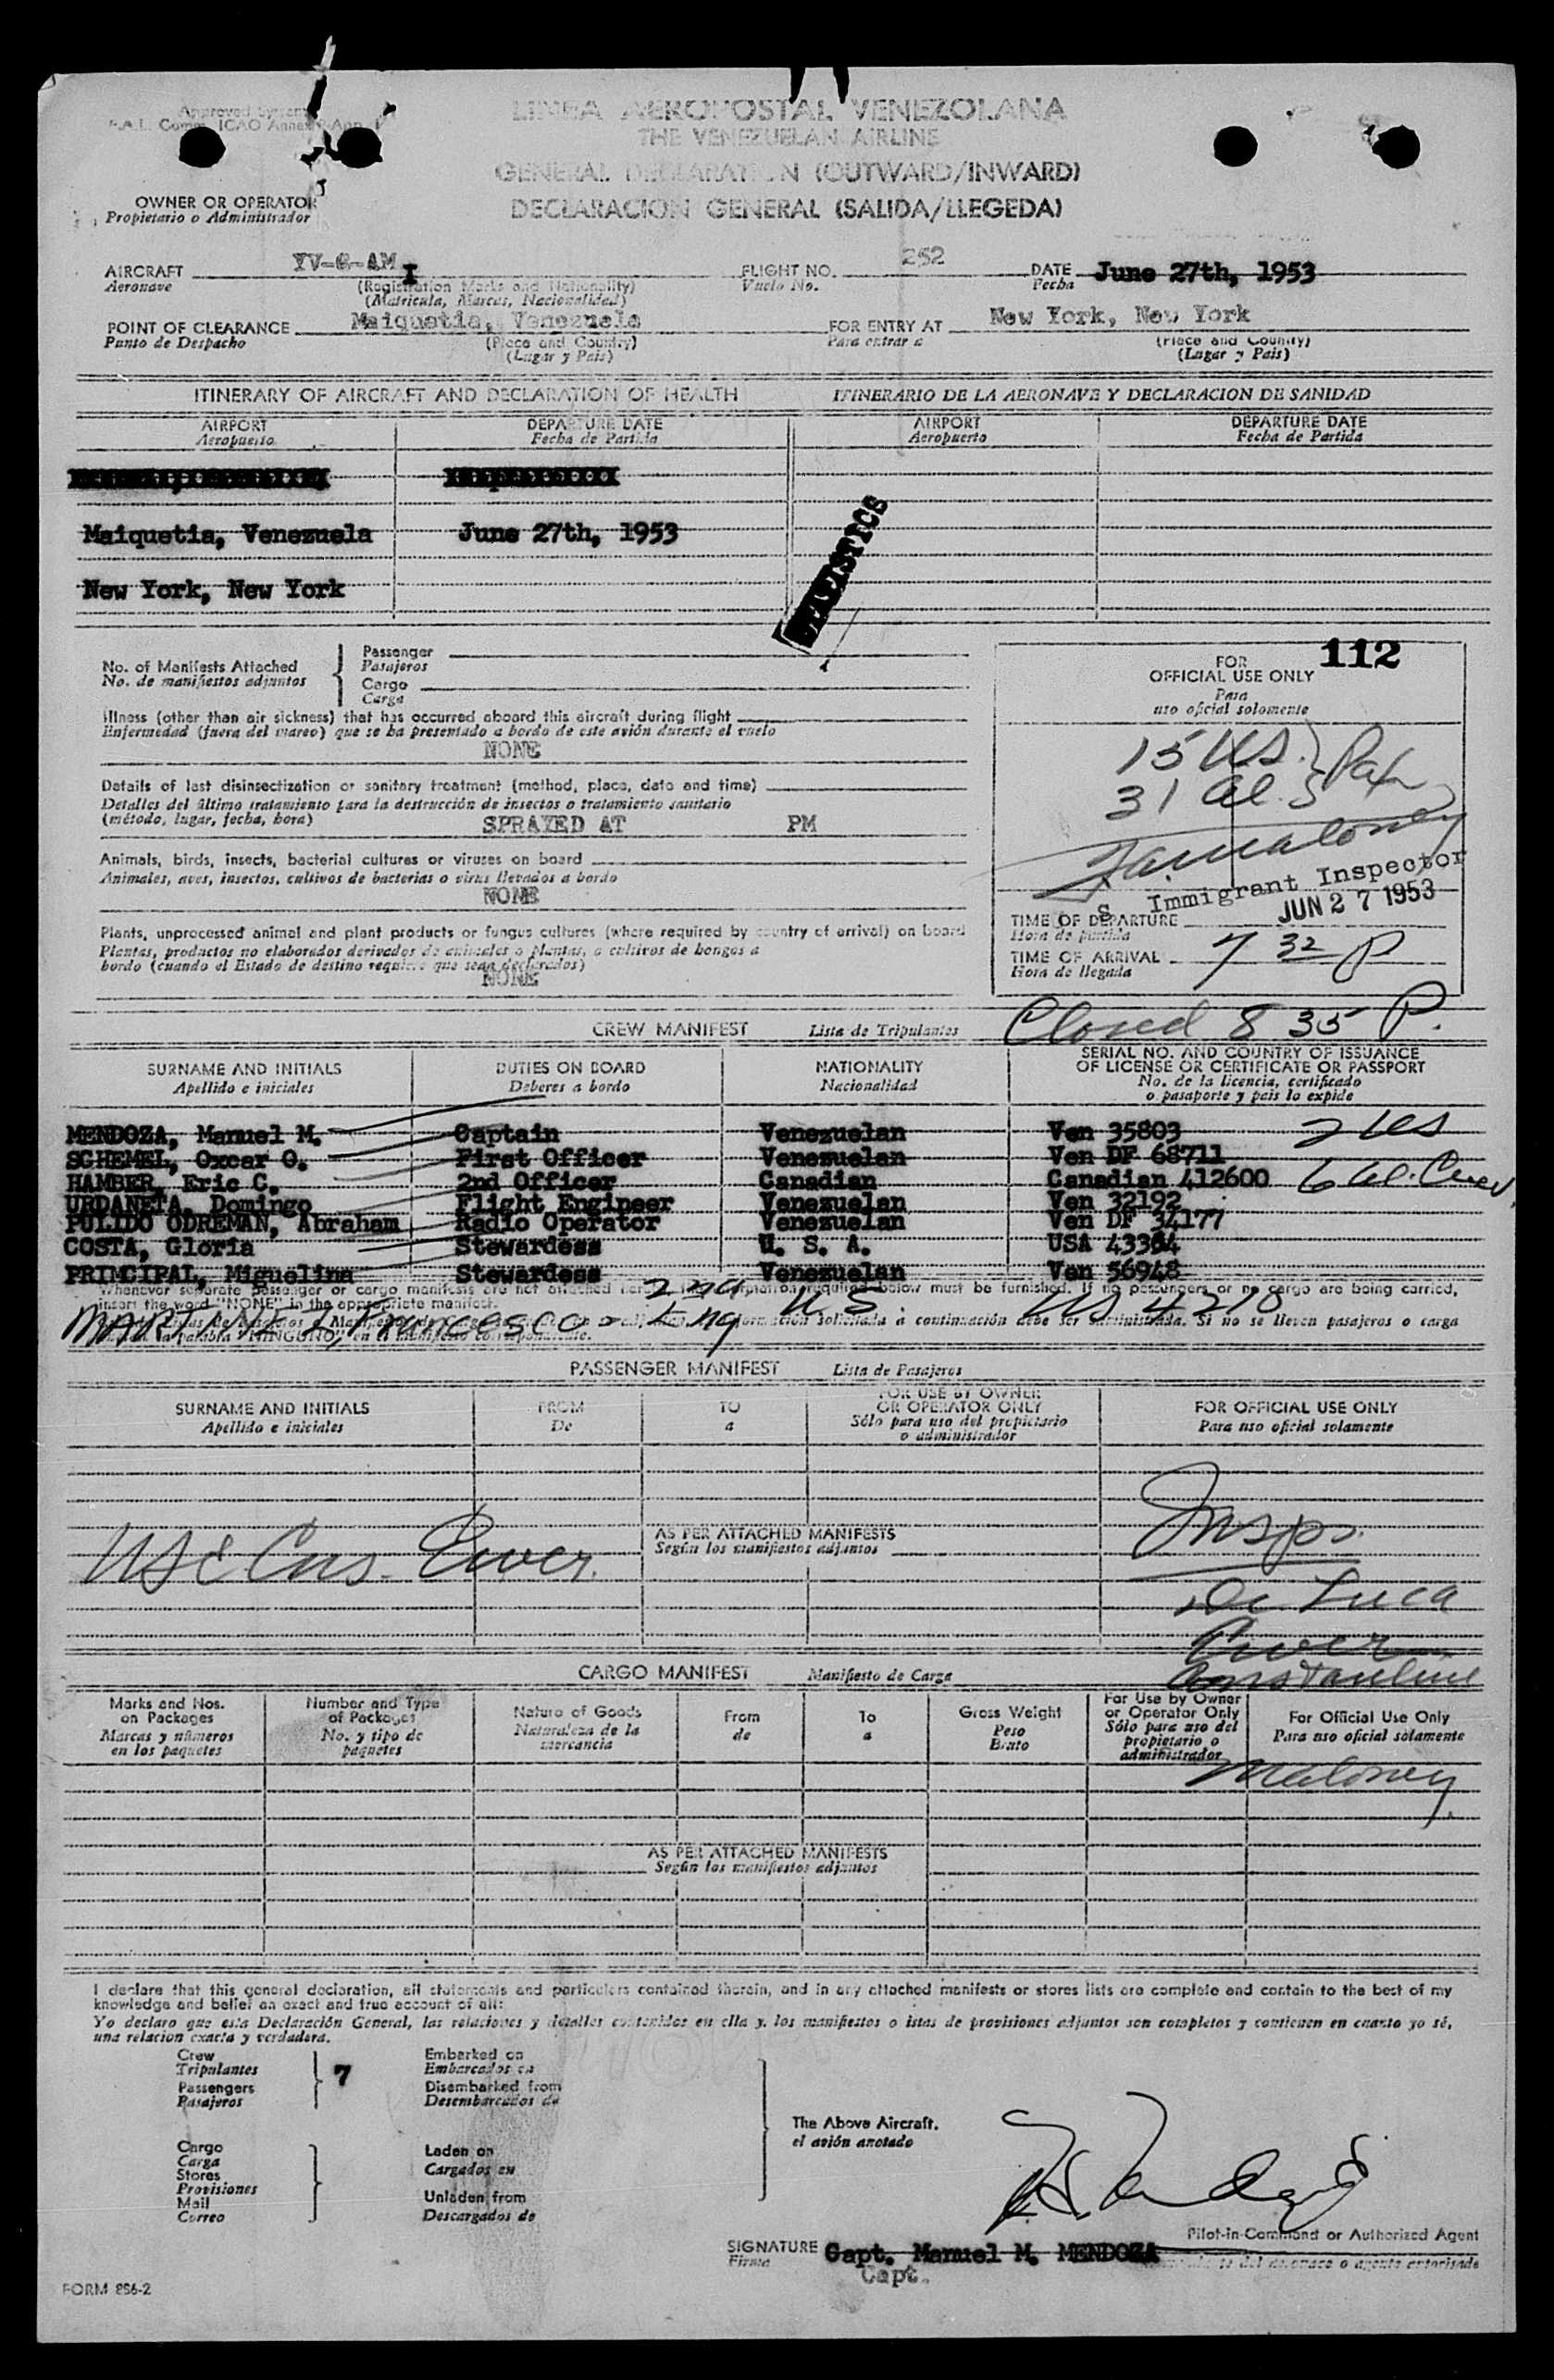 LINEA AEROPOSTAL VENEZOLANA
THE VENEZUELAN AIRLINE
GENERAL DECLARATION (OUTWARD/INWARD)
DECLARACION GENERAL (SALIDA/LLEGEDA)
OWNER OR OPERATOR
Propietario o Administrador
AIRCRAFT YV-C-AMI FLIGHT NO. 252 DATE June 27th, 1953
Aeronave (Registration Marks and Nationality) Vuelo No. Fecha
(Matricula, Marcas, Nacionalidad)
POINT OF CLEARANCE Maiquetia, Venezuela FOR ENTRY AT New York, New York
Punto de Despacho (Place and Country) Para entrar a (Place and Country)
(Lugar y Pais) (Lugar y Pais)
ITINERARY OF AIRCRAFT AND DECLARATION OF HEALTH ITINERARIO DE LA AERONAVE Y DECLARACION DE SANIDAD
AIRPORT DEPARTURE DATE AIRPORT DEPARTURE DATE
Aeropuerto Fecha de Partida Aeropuerto Fecha de Partida
Maiquetia, Venezuela June 27th, 1953
New York, New York
STATISTICS
No. of Manifests Attached
No. de manifiestos adjuntos
Passenger
Pasajeros
Cargo
Carga
Illness (other than air sickness) that has occurred aboard this aircraft during flight
Enfermedad (fuera del mareo) que se ha presentado a bordo de este avión durante el vuelo
NONE
Details of last disinsectization or sanitary treatment (method, place, date and time)
Detalles del último tratamiento para la destrucción de insectos o tratamiento sanitario
(método, lugar, fecha, hora)
SPRAYED AT PM
Animals, birds, insects, bacterial cultures or viruses on board
Animales, aves, insectos, cultivos de bacterias o virus llevados a bordo
NONE
Plants, unprocessed animal and plant products or fungus cultures (where required by country of arrival) on board
Plantas, productos no elaborados derivados de animales o plantas, o cultivos de hongos a
bordo (cuando el Estado de destino requiere que sean declarados)
NONE
FOR 112
OFFICIAL USE ONLY
Para
uso oficial solomente
15 US. Pax
31 al.
Maloney
S. Immigrant Inspector
JUN 27 1953
TIME OF DEPARTURE
Hora de partida
TIME OF ARRIVAL 7 32 P
Hora de llegada
Closed 8 35 P.
CREW MANIFEST Lista de Tripulantes
SURNAME AND INITIALS DUTIES ON BOARD NATIONALITY SERIAL NO. AND COUNTRY OF ISSUANCE
OF LICENSE OR CERTIFICATE OR PASSPORT
Apellido e iniciales Deberes a bordo Nacionalidad No. de la licencia, certificado
o pasaporte y pais lo expide
MENDOZA, Manuel M. Captain Venezuelan Ven 35803 2 US
SCHEMEL, Oxcar O. First Officer Venezuelan Ven DF 68711
HAMBER, Eric C. 2nd Officer Canadian Canadian 412600 6 al. Crew
URDANETA, Domingo Flight Engineer Venezuelan Ven 32192
PULIDO ODREMAN, Abraham Radio Operator Venezuelan Ven DF 34177
COSTA, Gloria Stewardess U. S. A. USA 43364
PRINCIPAL, Miguelina Stewardess Venezuelan Ven 56948
MARTINEZ, Francesco 2nd Eng U.S. US 4210
PASSENGER MANIFEST Lista de Pasajeros
SURNAME AND INITIALS FROM TO FOR USE BY OWNER
OR OPERATOR ONLY FOR OFFICIAL USE ONLY
Apellido e iniciales De a Sólo para uso del propietario
o administrador Para uso oficial solamente
AS PER ATTACHED MANIFESTS
Según los manifiestos adjuntos
Insps.
De Luca
Constantine
CARGO MANIFEST Manifiesto de Carga
Marks and Nos.
on Packages
Marcas y números
en los paquetes
Number and Type
of Packages
No. y tipo de
paquetes
Nature of Goods
Naturaleza de la
mercancia
From
de
To
a
Gross Weight
Peso
Bruto
For Use by Owner
or Operator Only
Sólo para uso del
propietario o
administrador
For Official Use Only
Para uso oficial solamente
Maloney
AS PER ATTACHED MANIFESTS
Según los manifiestos adjuntos
I declare that this general declaration, all statements and particulars contained therein, and in any attached manifests or stores lists are complete and contain to the best of my
knowledge and belief an exact and true account of all:
Yo declaro que esta Declaración General, las relaciones y detalles contenidos en ella y los manifiestos o istas de provisiones adjuntos son completos y contienen en cuanto yo sé,
una relacion exacta y verdadera.
Crew
Tripulantes
Passengers
Pasajeros
7
Embarked on
Embarcados en
Disembarked from
Desembarcados de
Cargo
Carga
Stores
Provisiones
Mail
Correo
Laden on
Cargados en
Unladen from
Descargados de
The Above Aircraft.
el avión anotado
Pilot-in-Command or Authorized Agent
SIGNATURE Capt. Manuel M. MENDOZA
Firma Capt.
FORM 886-2